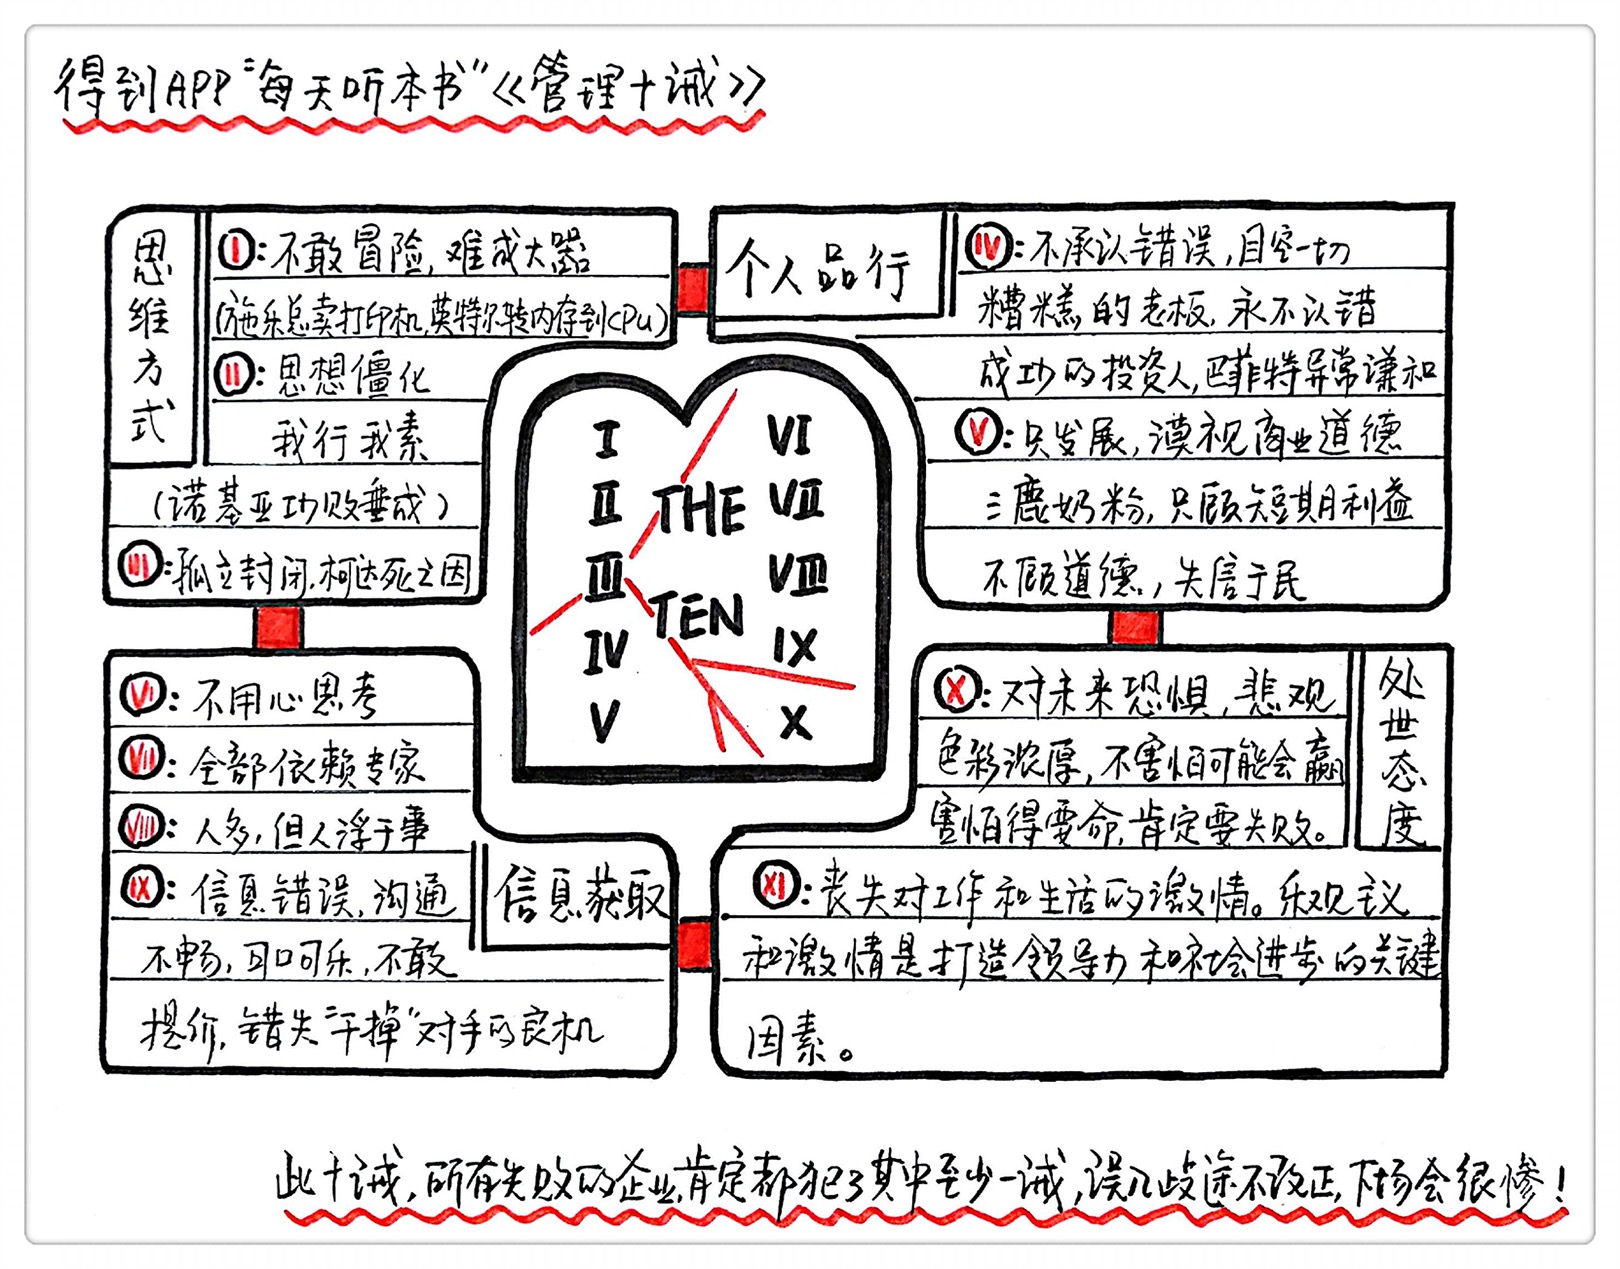 得到APP“每天听本书”《管理十诫》
思维方式
Ⅰ:不敢冒险,难成大器
(施乐总卖打印机,英特尔转内存到CPU)
Ⅱ:思想僵化
我行我素
(诺基亚功败垂成)
Ⅲ:孤立封闭,柯达死之因
个人品行
Ⅳ:不承认错误,目空一切
糟糕的老板,永不认错
成功的投资人,巴菲特异常谦和
Ⅴ:只发展,漠视商业道德
三鹿奶粉,只顾短期利益
不顾道德,失信于民
Ⅰ
Ⅱ
Ⅲ
Ⅳ
Ⅴ
THE
TEN
Ⅵ
Ⅶ
Ⅷ
Ⅸ
Ⅹ
Ⅵ:不用心思考
Ⅶ:全部依赖专家
Ⅷ:人多,但人浮于事
Ⅸ:信息错误,沟通
不畅,可口可乐,不敢
提价,错失“干掉”对手的良机
信息获取
处世态度
Ⅹ:对未来恐惧,悲观
色彩浓厚,不害怕可能会赢
害怕得要命,肯定要失败。
Ⅺ:丧失对工作和生活的激情。乐观主义
和激情是打造领导力和社会进步的关键
因素。
此十诫,所有失败的企业,肯定都犯了其中至少一诫,误入歧途不改正,下场会很惨!